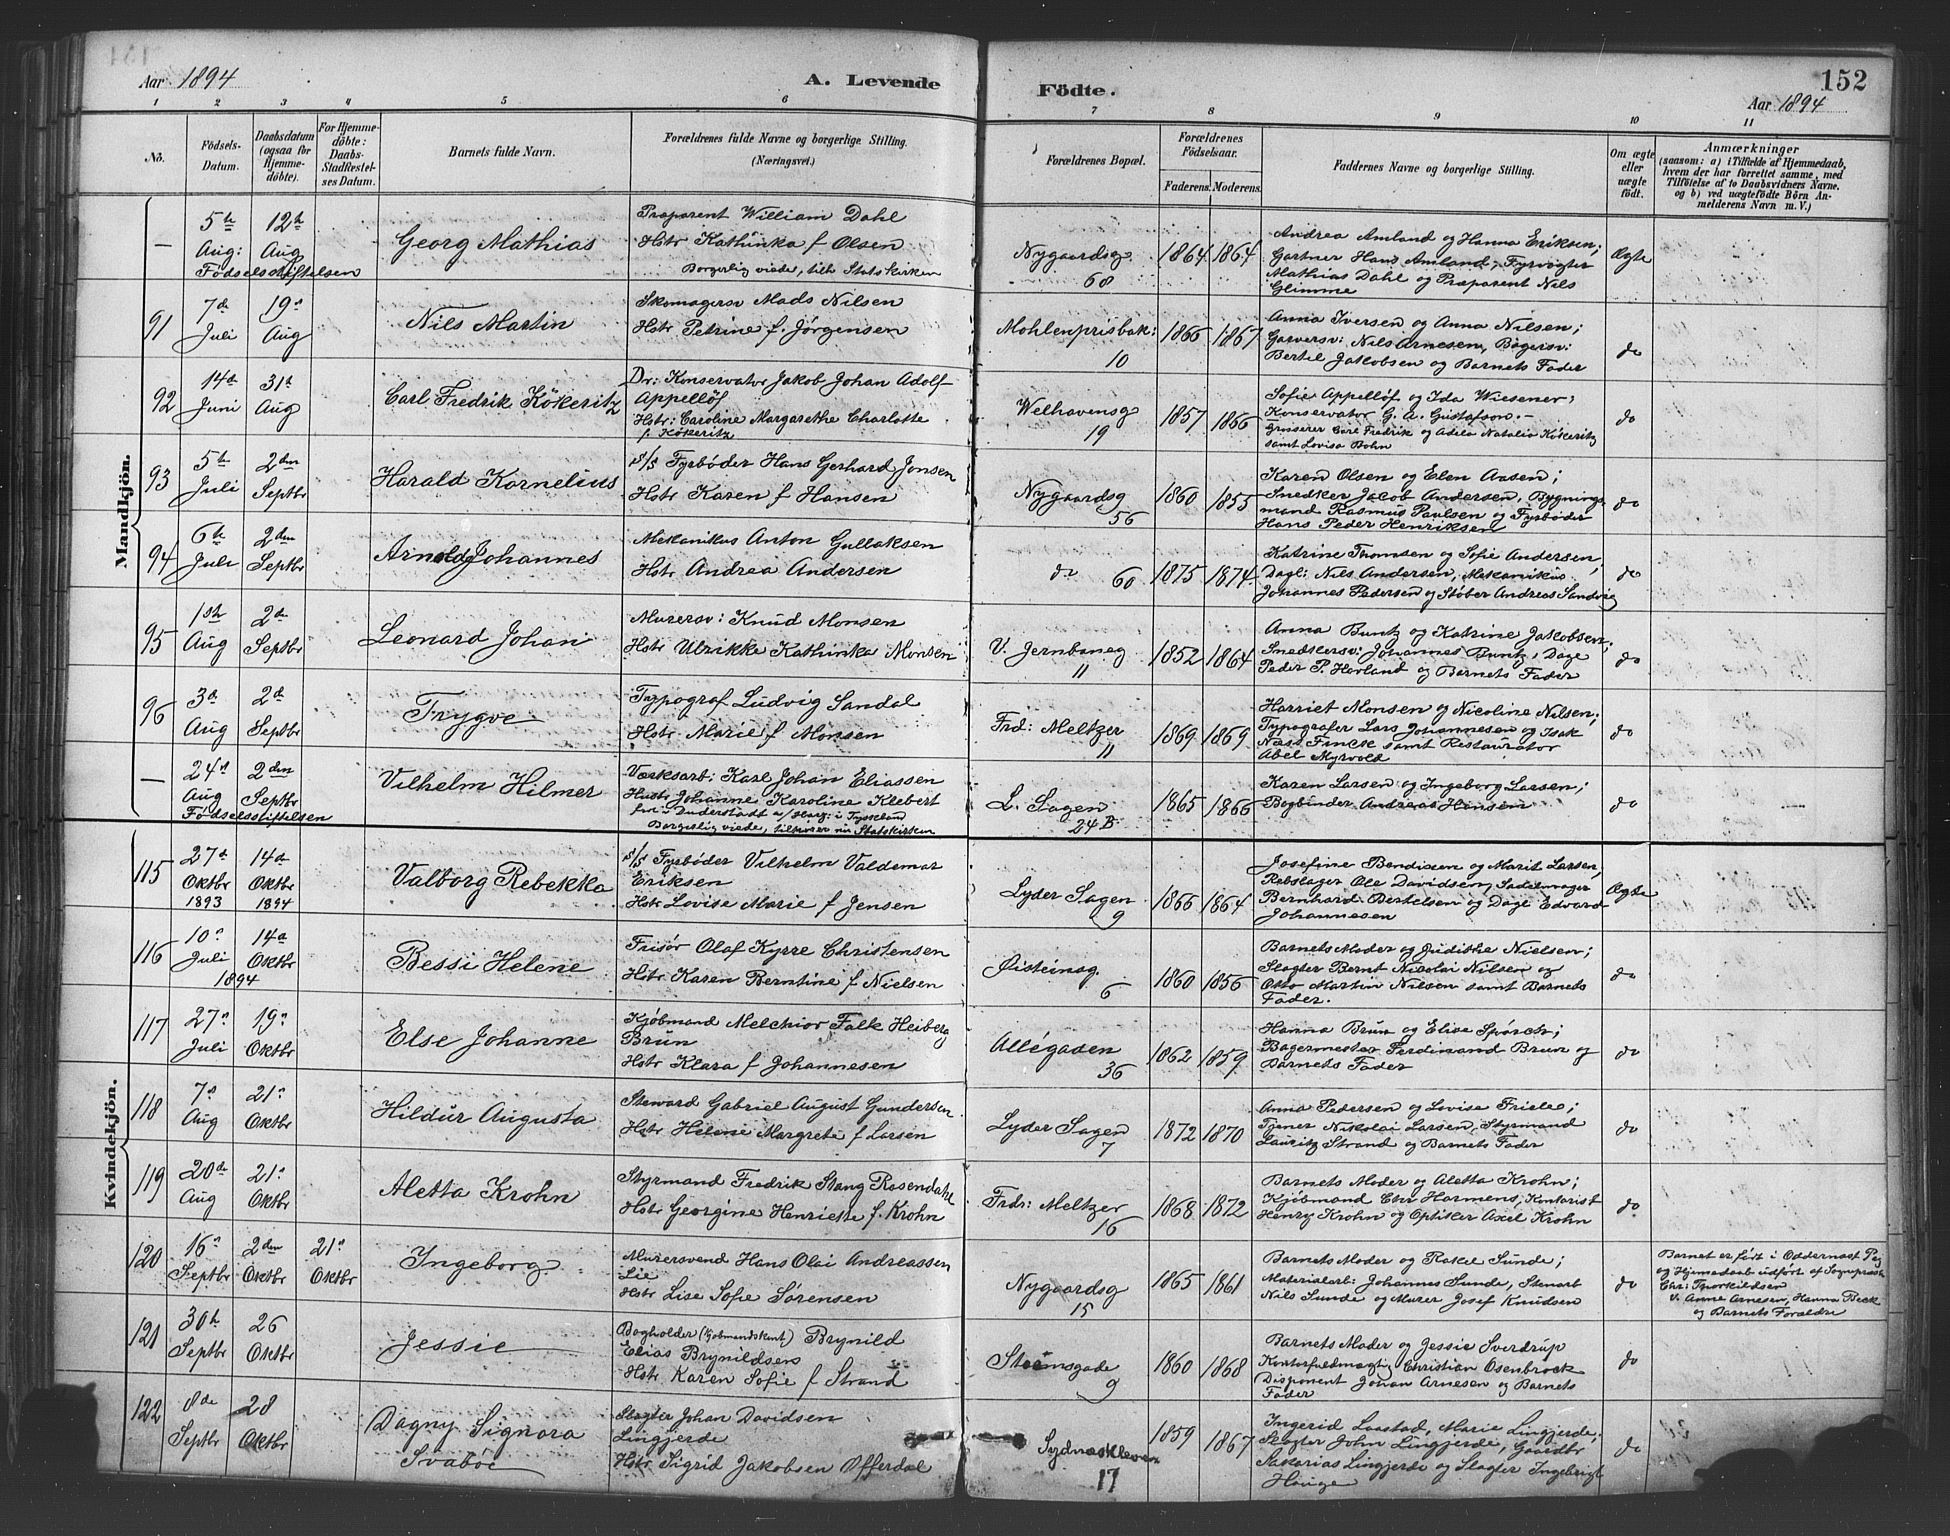 Aar 1894
A. Levende
Födte.
152
Aar 1894
1 2 3 4 5 6 7 8 9 10 11
No.
Födsels-
Datum.
Daabsdatum
(ogsaa for
Hjemme-
döbte).
For Hjemme-
döbte:
Daabs-
Stadfæstel-
ses Datum.
Barnets fulde Navn.
Forældrenes fulde Navne og borgerlige Stilling.
(Næringsvei.)
Forældrenes Bopæl.
Forældrenes
Födselsaar.
Faderens. Moderens.
Faddernes Navne og borgerlige Stilling.
Om ægte
eller
uægte
födt.
Anmærkninger
(saasom: a) i Tilfælde af Hjemmedaab,
hvem der har forrettet samme, med
Tilföielse af to Daabsvidners Navne.
og b) ved uægtefödte Börn An-
melderens Navn m. V.)
Mandkjön.
—
5te Aug:
12te Aug
Födselsstiftelsen
Georg Mathias
Præparent William Dahl
Hstr Kathinka f Olsen
Borgerlig viede, tilh Statskirken
Nygaardsg
68
1864 1864
Andrea Amland og Hanna Eriksen;
Gartner Hans Amland, Fyrvogter
Mathias Dahl og Præparent Nils
Glimme
Ægte
91
7de Juli
19n Aug
Nils Martin
Skomagersv Mads Nilsen
Hstr Petrine f. Jørgensen
Mohlenprisbak:
10
1866 1867
Anna Iversen og Anna Nilsen;
Garversv: Nils Arnesen, Bagersv:
Bertel Jakobsen og Barnets Fader
do
92
14de Juni
31te Aug
Carl Fredrik Kökeritz
Dr: Konservator Jakob Johan Adolf
Appellöf
Hstr: Caroline Margarethe Charlotte
f. Kökeritz
Welhavensg
19
1857 1866
Sofie Appellöf og Ida Wiesener;
Konservator G. A. Gustafson.-
Grosserer Carl Fredrik og Adela Natalia Kökeritz
samt Lovisa Bohn
do
93
5te Juli
2den Septbr
Harald Kornelius
s/s Fyrbøder Hans Gerhard Jensen
Hstr Karen f Hansen
Nygaardsg
56
1860 1855
Karen Olsen og Elen Aasen;
Snedker Jacob Andersen, Bygnings
mand Rasmus Paulsen og Fyrbøder
Hans Peder Henriksen
do
94
6te Juli
2den Septbr
Arnold Johannes
Mekanikus Anton Gullaksen
Hstr Andrea Andersen
do 60
1875 1874
Katrine Thomsen og Sofie Andersen;
Dagl: Nils Andersen, Mekanikus
Johannes Pedersen og Støber Andreas Sandvig
do
95
1ste Aug
2de Septbr
Leonard Johan
Murersv: Knud Monsen
Hstr Ulrikke Kathinka Monsen
V. Jernbaneg
11
1852 1864
Anna Buntz og Katrine Jakobsen;
Snedkersv: Johannes Buntz, Dagl
Peder P. Hovland og Barnets Fader
do
96
3de Aug
2de Septbr
Trygve
Typograf Ludvig Sandal
Hstr Marie f Monsen
Frd: Meltzer
11
1869 1869
Harriet Monsen og Nicoline Nilsen;
Typografer Lars Johannesen og Isak
Næss Finck samt Restauratør
Abel Myrvold
do
—
24n Aug
2den Septbr
Födselsstiftelsen
Vilhelm Hilmer
Værksarb: Karl Johan Eliassen
Hustr Johanne Karoline Klebert
fra Duderstadt a/Harz i Tyskland
Borgerlig viede, tilhører nu Statskirken
L. Sagen
24B
1865 1866
Karen Larsen og Ingeborg Larsen;
Bogbinder Andreas Hansen
do
Kvindekjön.
115
27de Oktbr 1893
14de Oktbr 1894
Valborg Rebekka
s/s Fyrbøder Vilhelm Valdemar
Eriksen
Hstr Lovise Marie f Jensen
Lyder Sagen
9
1866 1864
Josefine Bendixen og Marit Larsen,
Rebslager Ole Davidsen, Sadelmager
Bernhard Bertelsen og Dagl Edvard
Johannesen
Ægte
116
10n Juli
14de Oktbr
1894
Bessi Helene
Frisør Olaf Kyrre Christensen
Hstr Karen Berntine f Nielsen
Øisteinsg
6
1860 1856
Barnets Moder og Judithe Nielsen;
Slagter Bernt Nicolai Nilsen og
Otto Martin Nilsen samt Barnets
Fader.
do
117
27n Juli
19n Oktbr
Else Johanne
Kjöbmand Melchior Falk Heiberg
Brun
Hstr Klara f Johannesen
Allégaden
36
1862 1859
Hanna Brun og Elise Spörck;
Bagermester Ferdinand Brun og
Barnets Fader
do
118
7n Aug
21n Oktbr
Hildur Augusta
Steward Gabriel August Gundersen
Hstr Helene Margrete f Larsen
Lyder Sagen
7
1872 1870
Anna Pedersen og Lovise Friele;
Tjener Nikolai Larsen, Styrmand
Lauritz Strand og Barnets Fader
do
119
20de Aug
21n Oktbr
Aletta Krohn
Styrmand Fredrik Stang Rosendahl
Hstr Georgine Henriette f. Krohn
Frdr: Meltzer
16
1868 1872
Barnets Moder og Aletta Krohn;
Kjöbmand Chr Harmens, Kontorist
Henry Krohn og Optiker Axel Krohn
do
120
16n Septbr
2den Oktbr
21n Oktbr
Ingeborg
Murersvend Hans Olai Andreassen
Lie
Hstr Lise Sofie Sørensen
Nygaardsg
15
1865 1861
Barnets Moder og Rakel Sunde;
Materialarb: Johannes Sunde, Stenarb
Nils Sunde og Murer Josef Knudsen
do
Barnet er født i Oddernæst Pg
og Hjemmedaab udført af Sogneprest
Chr: Thorkildsen
v. Anne Arnesen, Hanna Beck
og Barnets Forældre
121
30te Septbr
26 Oktbr
Jessie
Bogholder (Kjöbmandskont) Brynild
Elias Brynildsen
Hstr Karen Sofie f Strand
Strømsgade
9
1860 1868
Barnets Moder og Jessie Sverdrup
Kontorfuldmægtig Christian Osenbrock
Disponent Johan Arnesen og Barnets
Fader
do
122
8de Septbr
28 Oktbr
Dagny Signora
Svaböe
Slagter Johan Davidsen
Lingjerde
Hstr Sigrid Jakobsen Offerdal
Sydneskleven
17
1859 1867
Ingerid Laastad, Marie Lingjerde;
Slagter John Lingjerde, Gaardbr
Sakarias Lingjerde og Slagter Ingebrigt
Hauge
do